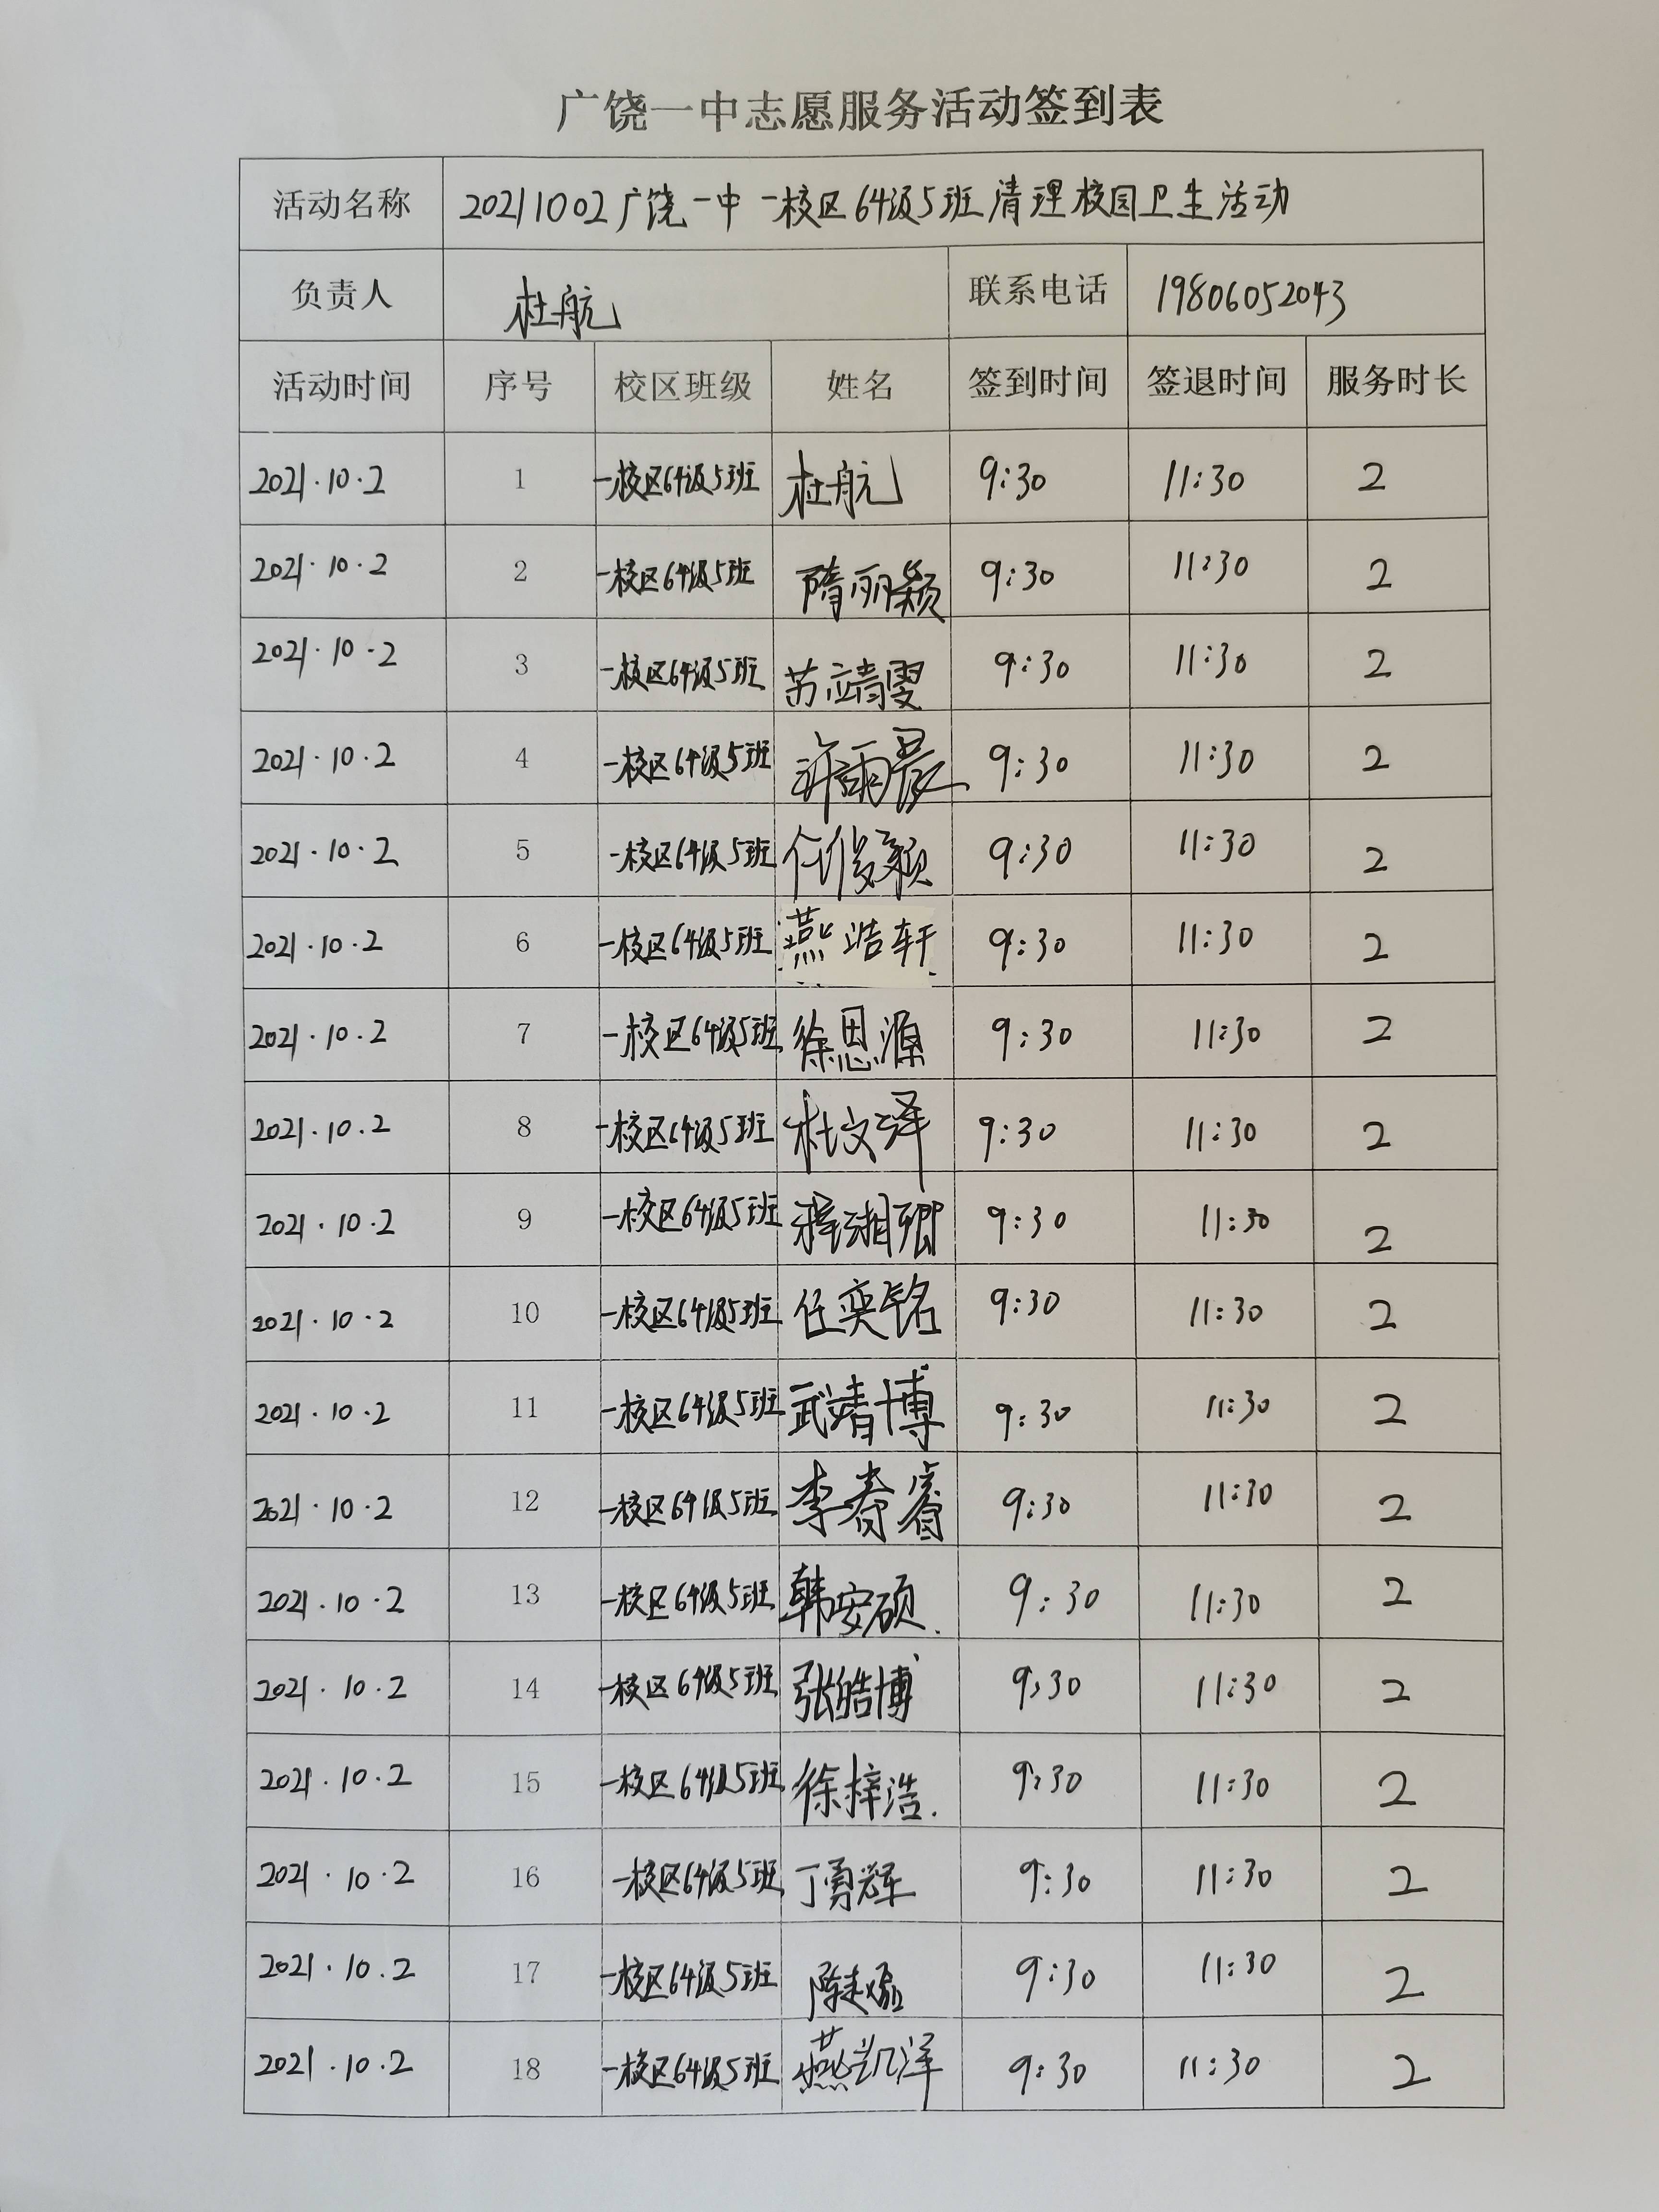 广饶一中志愿服务活动签到表
活动名称 20211002广饶一中一校区64级5班清理校园卫生活动
负责人 杜航 联系电话 19806052043
活动时间 序号 校区班级 姓名 签到时间 签退时间 服务时长
2021.10.2 1 一校区64级5班 杜航 9:30 11:30 2
2021.10.2 2 一校区64级5班 隋丽颖 9:30 11:30 2
2021.10.2 3 一校区64级5班 苏靖雯 9:30 11:30 2
2021.10.2 4 一校区64级5班 许雨晨 9:30 11:30 2
2021.10.2 5 一校区64级5班 任俊颖 9:30 11:30 2
2021.10.2 6 一校区64级5班 燕浩轩 9:30 11:30 2
2021.10.2 7 一校区64级5班 徐恩源 9:30 11:30 2
2021.10.2 8 一校区64级5班 杜文泽 9:30 11:30 2
2021.10.2 9 一校区64级5班 9:30 11:30 2
2021.10.2 10 一校区64级5班 任奕铭 9:30 11:30 2
2021.10.2 11 一校区64级5班 武靖博 9:30 11:30 2
2021.10.2 12 一校区64级5班 李春睿 9:30 11:30 2
2021.10.2 13 一校区64级5班 韩安硕 9:30 11:30 2
2021.10.2 14 一校区64级5班 张皓博 9:30 11:30 2
2021.10.2 15 一校区64级5班 徐梓浩 9:30 11:30 2
2021.10.2 16 一校区64级5班 丁勇辉 9:30 11:30 2
2021.10.2 17 一校区64级5班 9:30 11:30 2
2021.10.2 18 一校区64级5班 燕凯泽 9:30 11:30 2